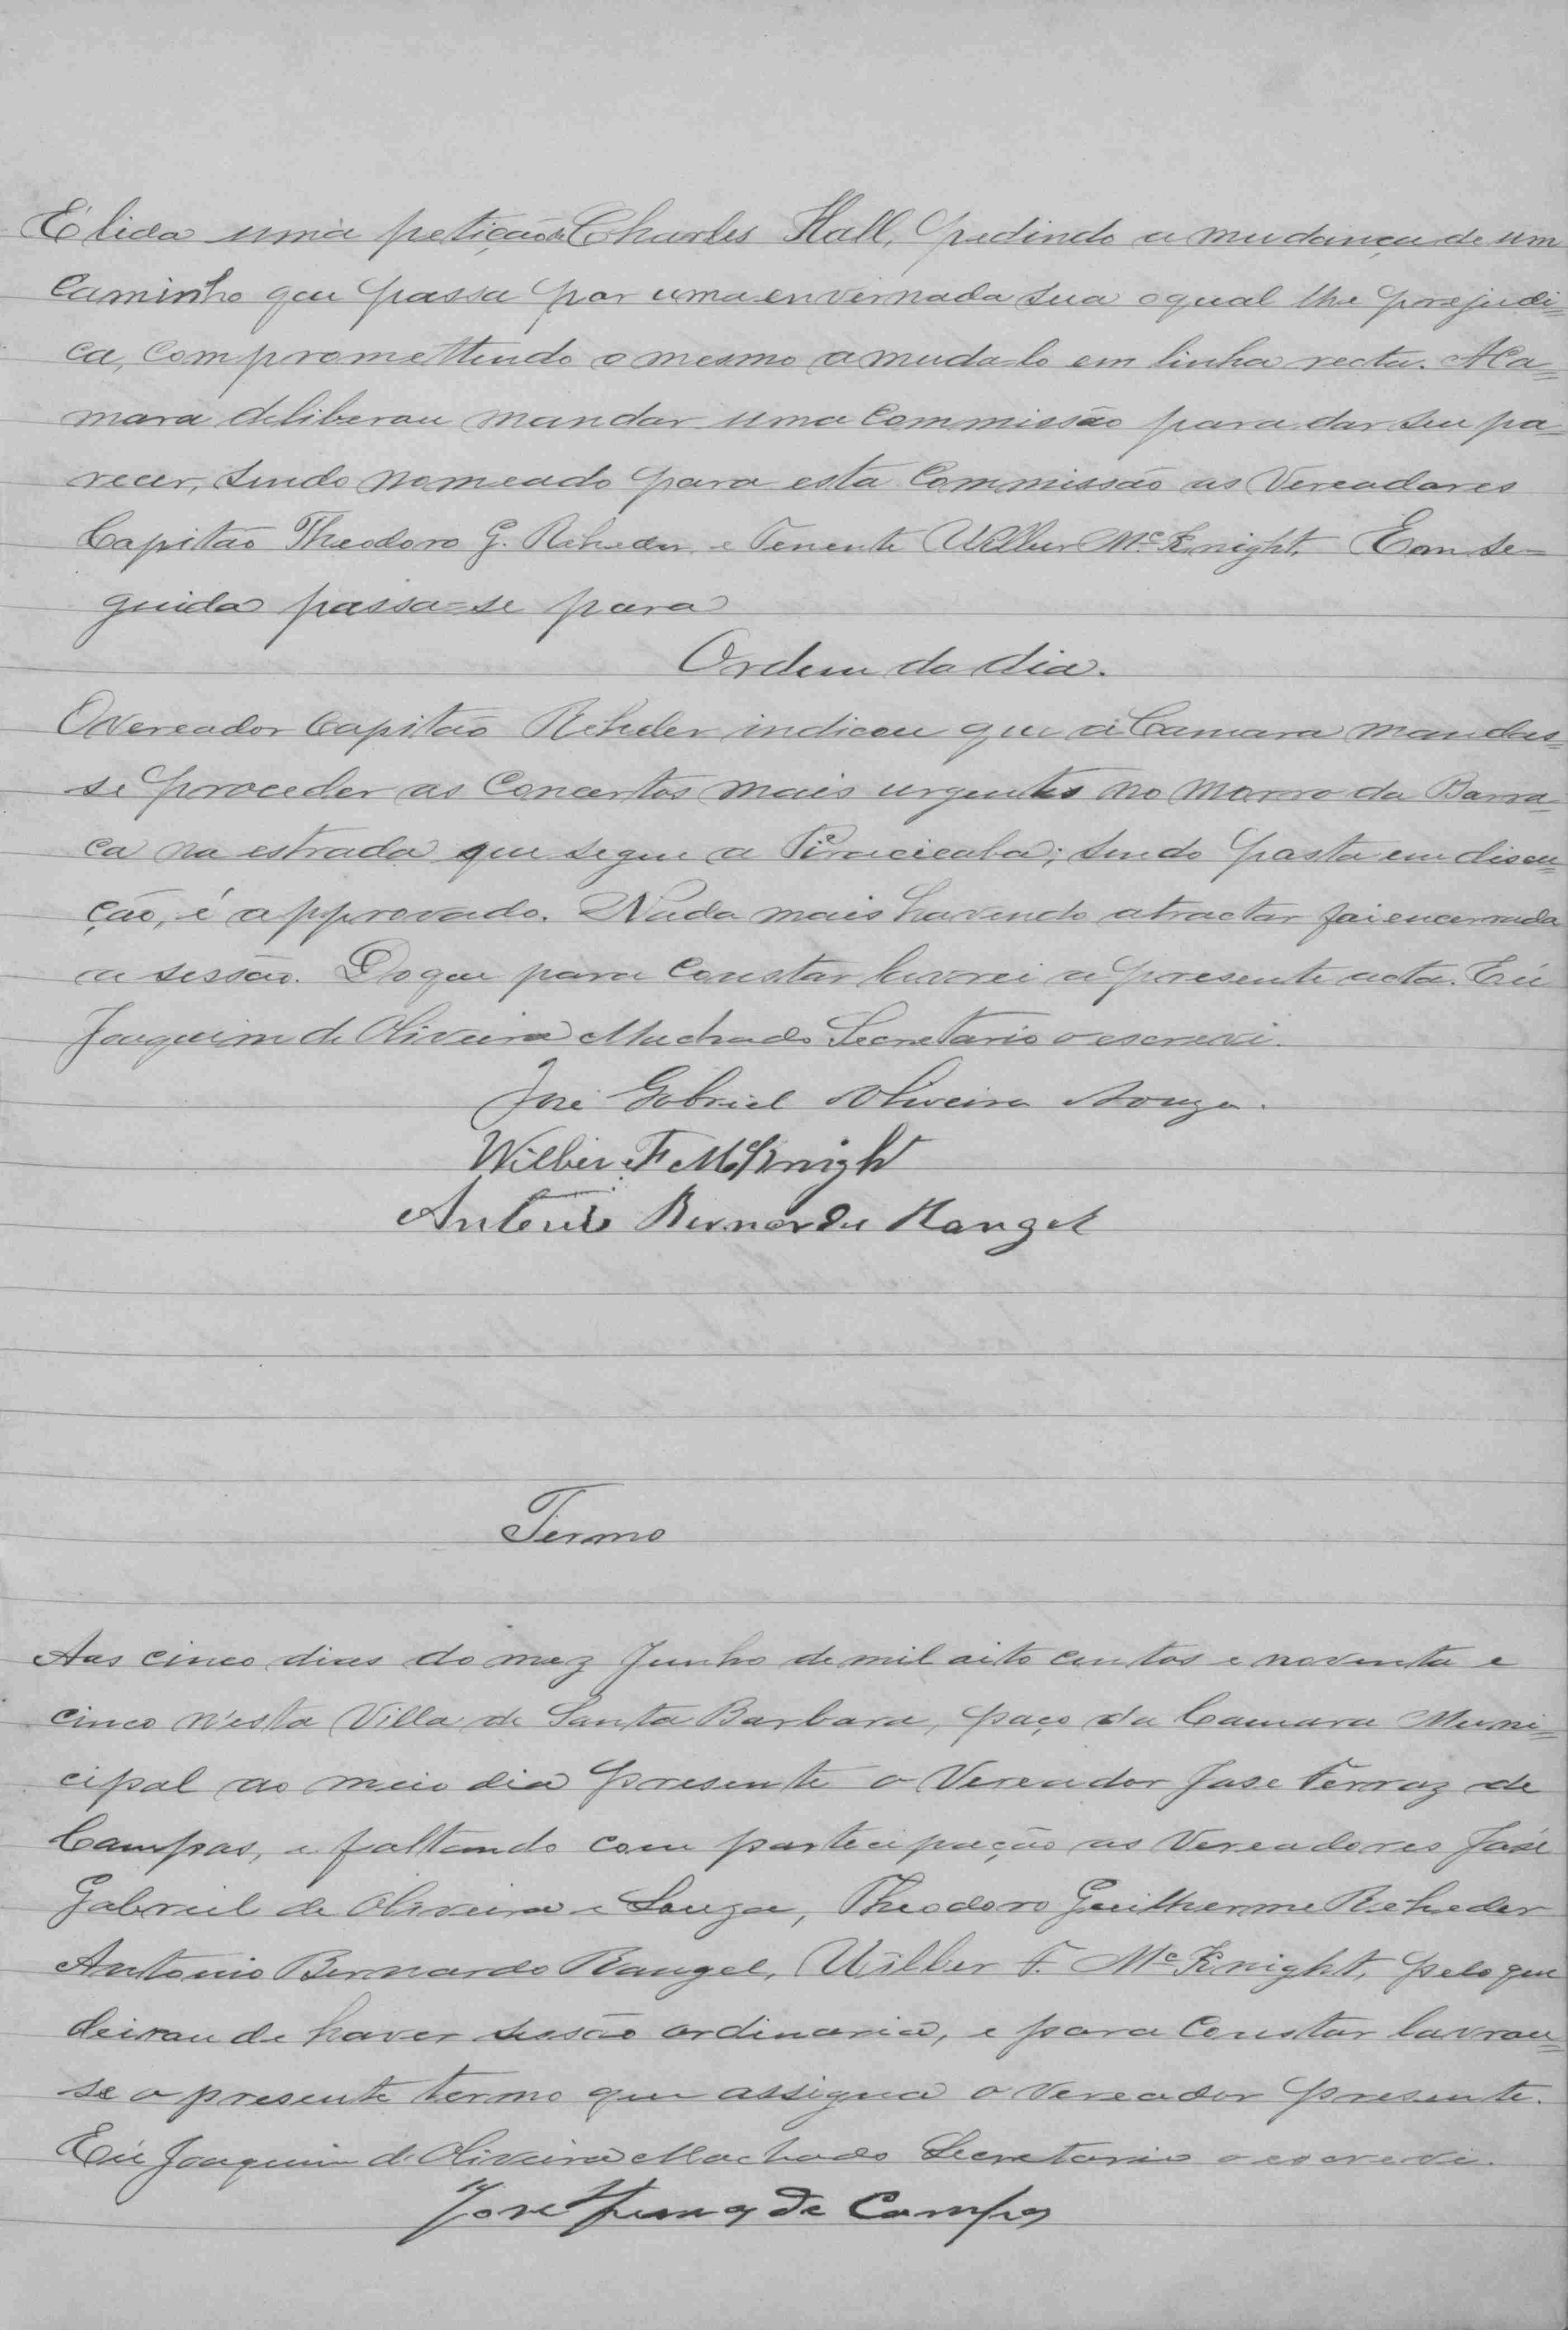 É lida uma petição de Charles Hall, pedindo a mudança de um
caminho que passa por uma envernada sua o qual lhe prejudi=
ca, compromettendo o mesmo a muda-lo em linha recta. A Ca=
mara deliberou mandar uma Commissão para dar seu pa=
recer, sendo nomeado para esta Commissão os Vereadores
Capitão Theodoro G. Reheder e Tenente Wilber Mc Knight. Em se=
guida passa=se para
Ordem do dia.
O Vereador Capitão Reheder indicou que a Camara mandas=
se proceder os Concertos mais urgentes no morro da Barro=
ca na estrada que segue a Piracicaba; sendo posta em discu=
ção, é approvado. Nada mais havendo a tractar foi encerrada
a sessão. Do que para constar lavrei a presente acta. Eu
Joaquim de Oliveira Machado Secretario o escrevi.
José Gabriel Oliveira Souza.
Wilber F McKnight
Antonio Bernardo Rangel
Termo
Aos cinco dias do mez Junho de mil oito centos e noventa e
cinco n'esta Villa de Santa Barbara, paço da Camara Muni=
cipal ao meio dia presente o Vereador Jose Ferraz de
Campos, e faltando com partecipação os Vereadores José
Gabriel de Oliveira e Souza, Theodoro Guilherme Reheder
Antonio Bernardo Rangel, Wilber F. Mc Knight, pelo que
deixou de haver sessão ordinaria, e para constar lavrou=
se o presente termo que assigna o Vereador presente.
Eu Joaquim de Oliveira Machado Secretario o escrevi.
Jose Ferraz de Campos